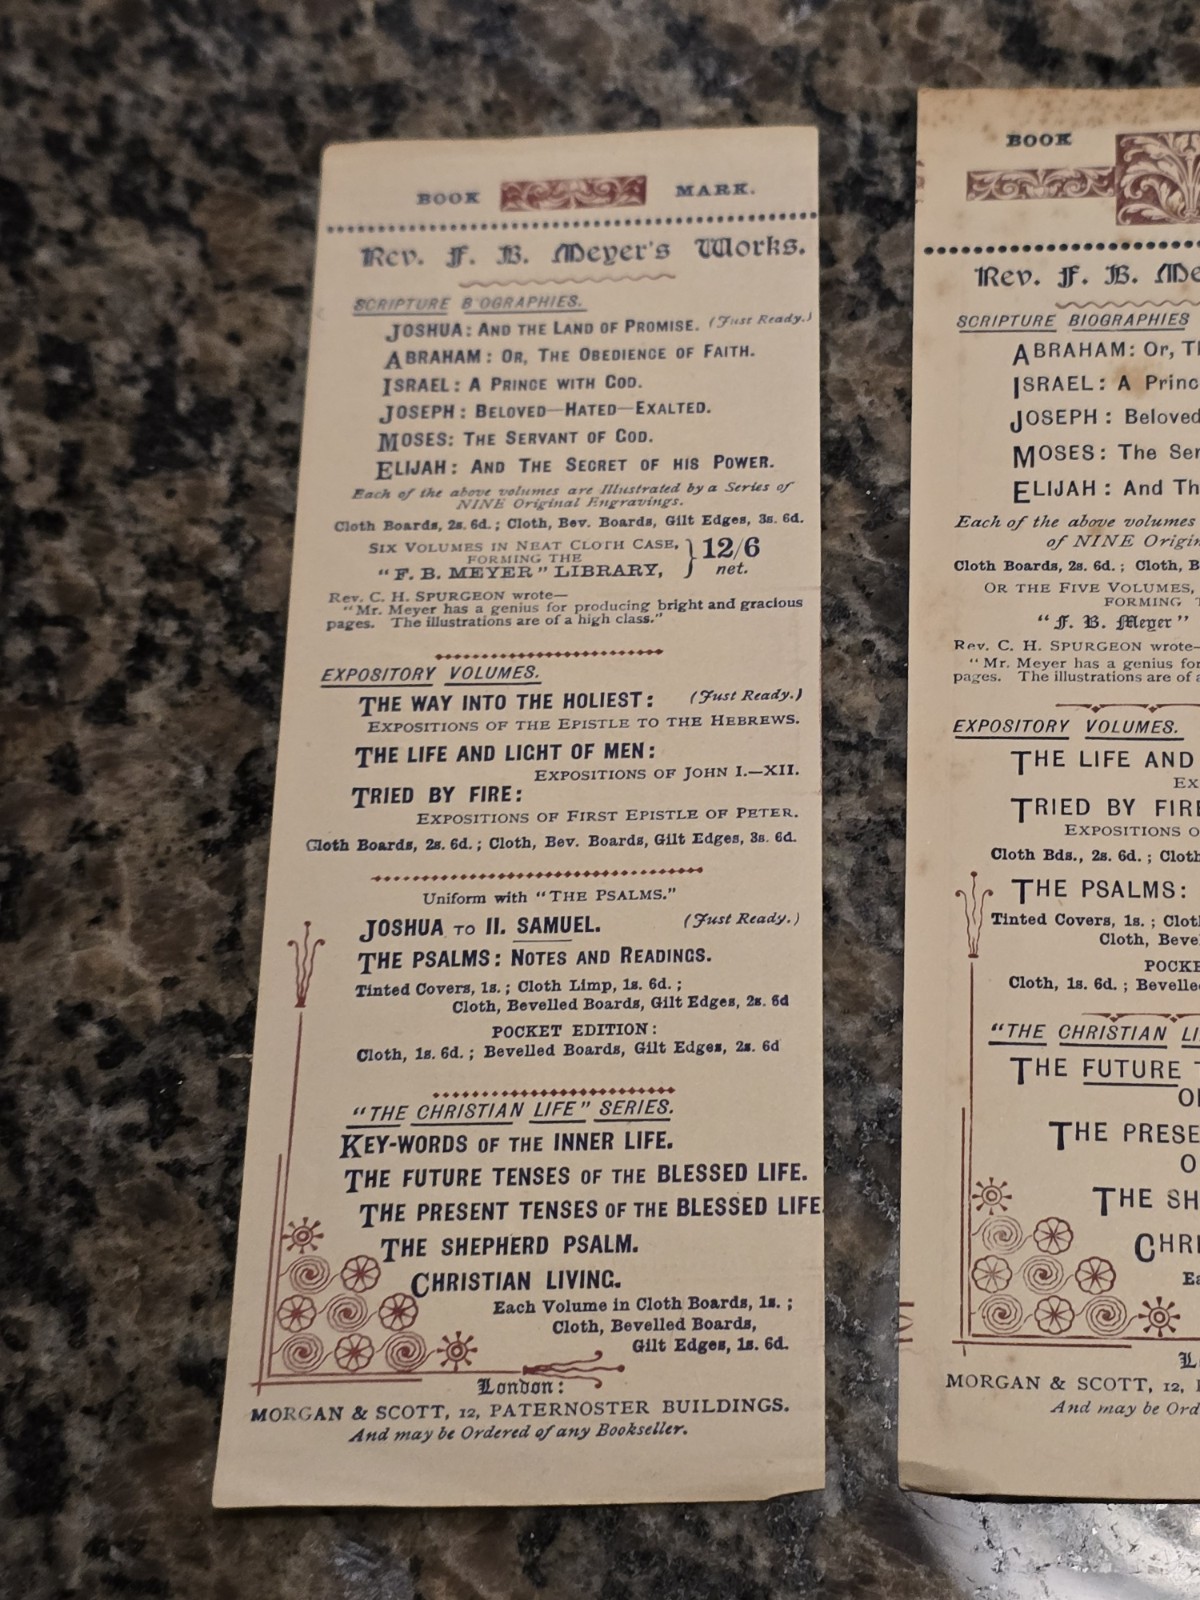 BOOK MARK.
Rev. F. B. Meyer's Works.
SCRIPTURE BIOGRAPHIES.
JOSHUA: AND THE LAND OF PROMISE. (Just Ready.)
ABRAHAM: OR, THE OBEDIENCE OF FAITH.
ISRAEL: A PRINCE WITH GOD.
JOSEPH: BELOVED—HATED—EXALTED.
MOSES: THE SERVANT OF GOD.
ELIJAH: AND THE SECRET OF HIS POWER.
Each of the above volumes are Illustrated by a Series of
NINE Original Engravings.
Cloth Boards, 2s. 6d.; Cloth, Bev. Boards, Gilt Edges, 3s. 6d.
SIX VOLUMES IN NEAT CLOTH CASE,
FORMING THE
"F. B. MEYER" LIBRARY, } 12/6 net.
Rev. C. H. SPURGEON wrote—
"Mr. Meyer has a genius for producing bright and gracious
pages. The illustrations are of a high class."
EXPOSITORY VOLUMES.
THE WAY INTO THE HOLIEST: (Just Ready.)
EXPOSITIONS OF THE EPISTLE TO THE HEBREWS.
THE LIFE AND LIGHT OF MEN:
EXPOSITIONS OF JOHN I.—XII.
TRIED BY FIRE:
EXPOSITIONS OF FIRST EPISTLE OF PETER.
Cloth Boards, 2s. 6d.; Cloth, Bev. Boards, Gilt Edges, 3s. 6d.
Uniform with "THE PSALMS."
JOSHUA TO II. SAMUEL. (Just Ready.)
THE PSALMS: NOTES AND READINGS.
Tinted Covers, 1s.; Cloth Limp, 1s. 6d.;
Cloth, Bevelled Boards, Gilt Edges, 2s. 6d
POCKET EDITION:
Cloth, 1s. 6d.; Bevelled Boards, Gilt Edges, 2s. 6d
"THE CHRISTIAN LIFE" SERIES.
KEY-WORDS OF THE INNER LIFE.
THE FUTURE TENSES OF THE BLESSED LIFE.
THE PRESENT TENSES OF THE BLESSED LIFE.
THE SHEPHERD PSALM.
CHRISTIAN LIVING.
Each Volume in Cloth Boards, 1s.;
Cloth, Bevelled Boards,
Gilt Edges, 1s. 6d.
London:
MORGAN & SCOTT, 12, PATERNOSTER BUILDINGS.
And may be Ordered of any Bookseller.
BOOK
Rev. F. B. Me
SCRIPTURE BIOGRAPHIES
ABRAHAM: Or, T
ISRAEL: A Princ
JOSEPH: Beloved
MOSES: The Ser
ELIJAH: And Th
Each of the above volumes
of NINE Origin
Cloth Boards, 2s. 6d.; Cloth, B
OR THE FIVE VOLUMES,
FORMING
"F. B. Meyer"
Rev. C. H. SPURGEON wrote—
"Mr. Meyer has a genius for
pages. The illustrations are of a
EXPOSITORY VOLUMES.
THE LIFE AND
EX
TRIED BY FIRE
EXPOSITIONS O
Cloth Bds., 2s. 6d.; Cloth
THE PSALMS:
Tinted Covers, 1s.; Clot
Cloth, Beve
POCKE
Cloth, 1s. 6d.; Bevelle
"THE CHRISTIAN LI
THE FUTURE T
O
THE PRESE
O
THE SH
CHRI
Ea
L
MORGAN & SCOTT, 12,
And may be Ord